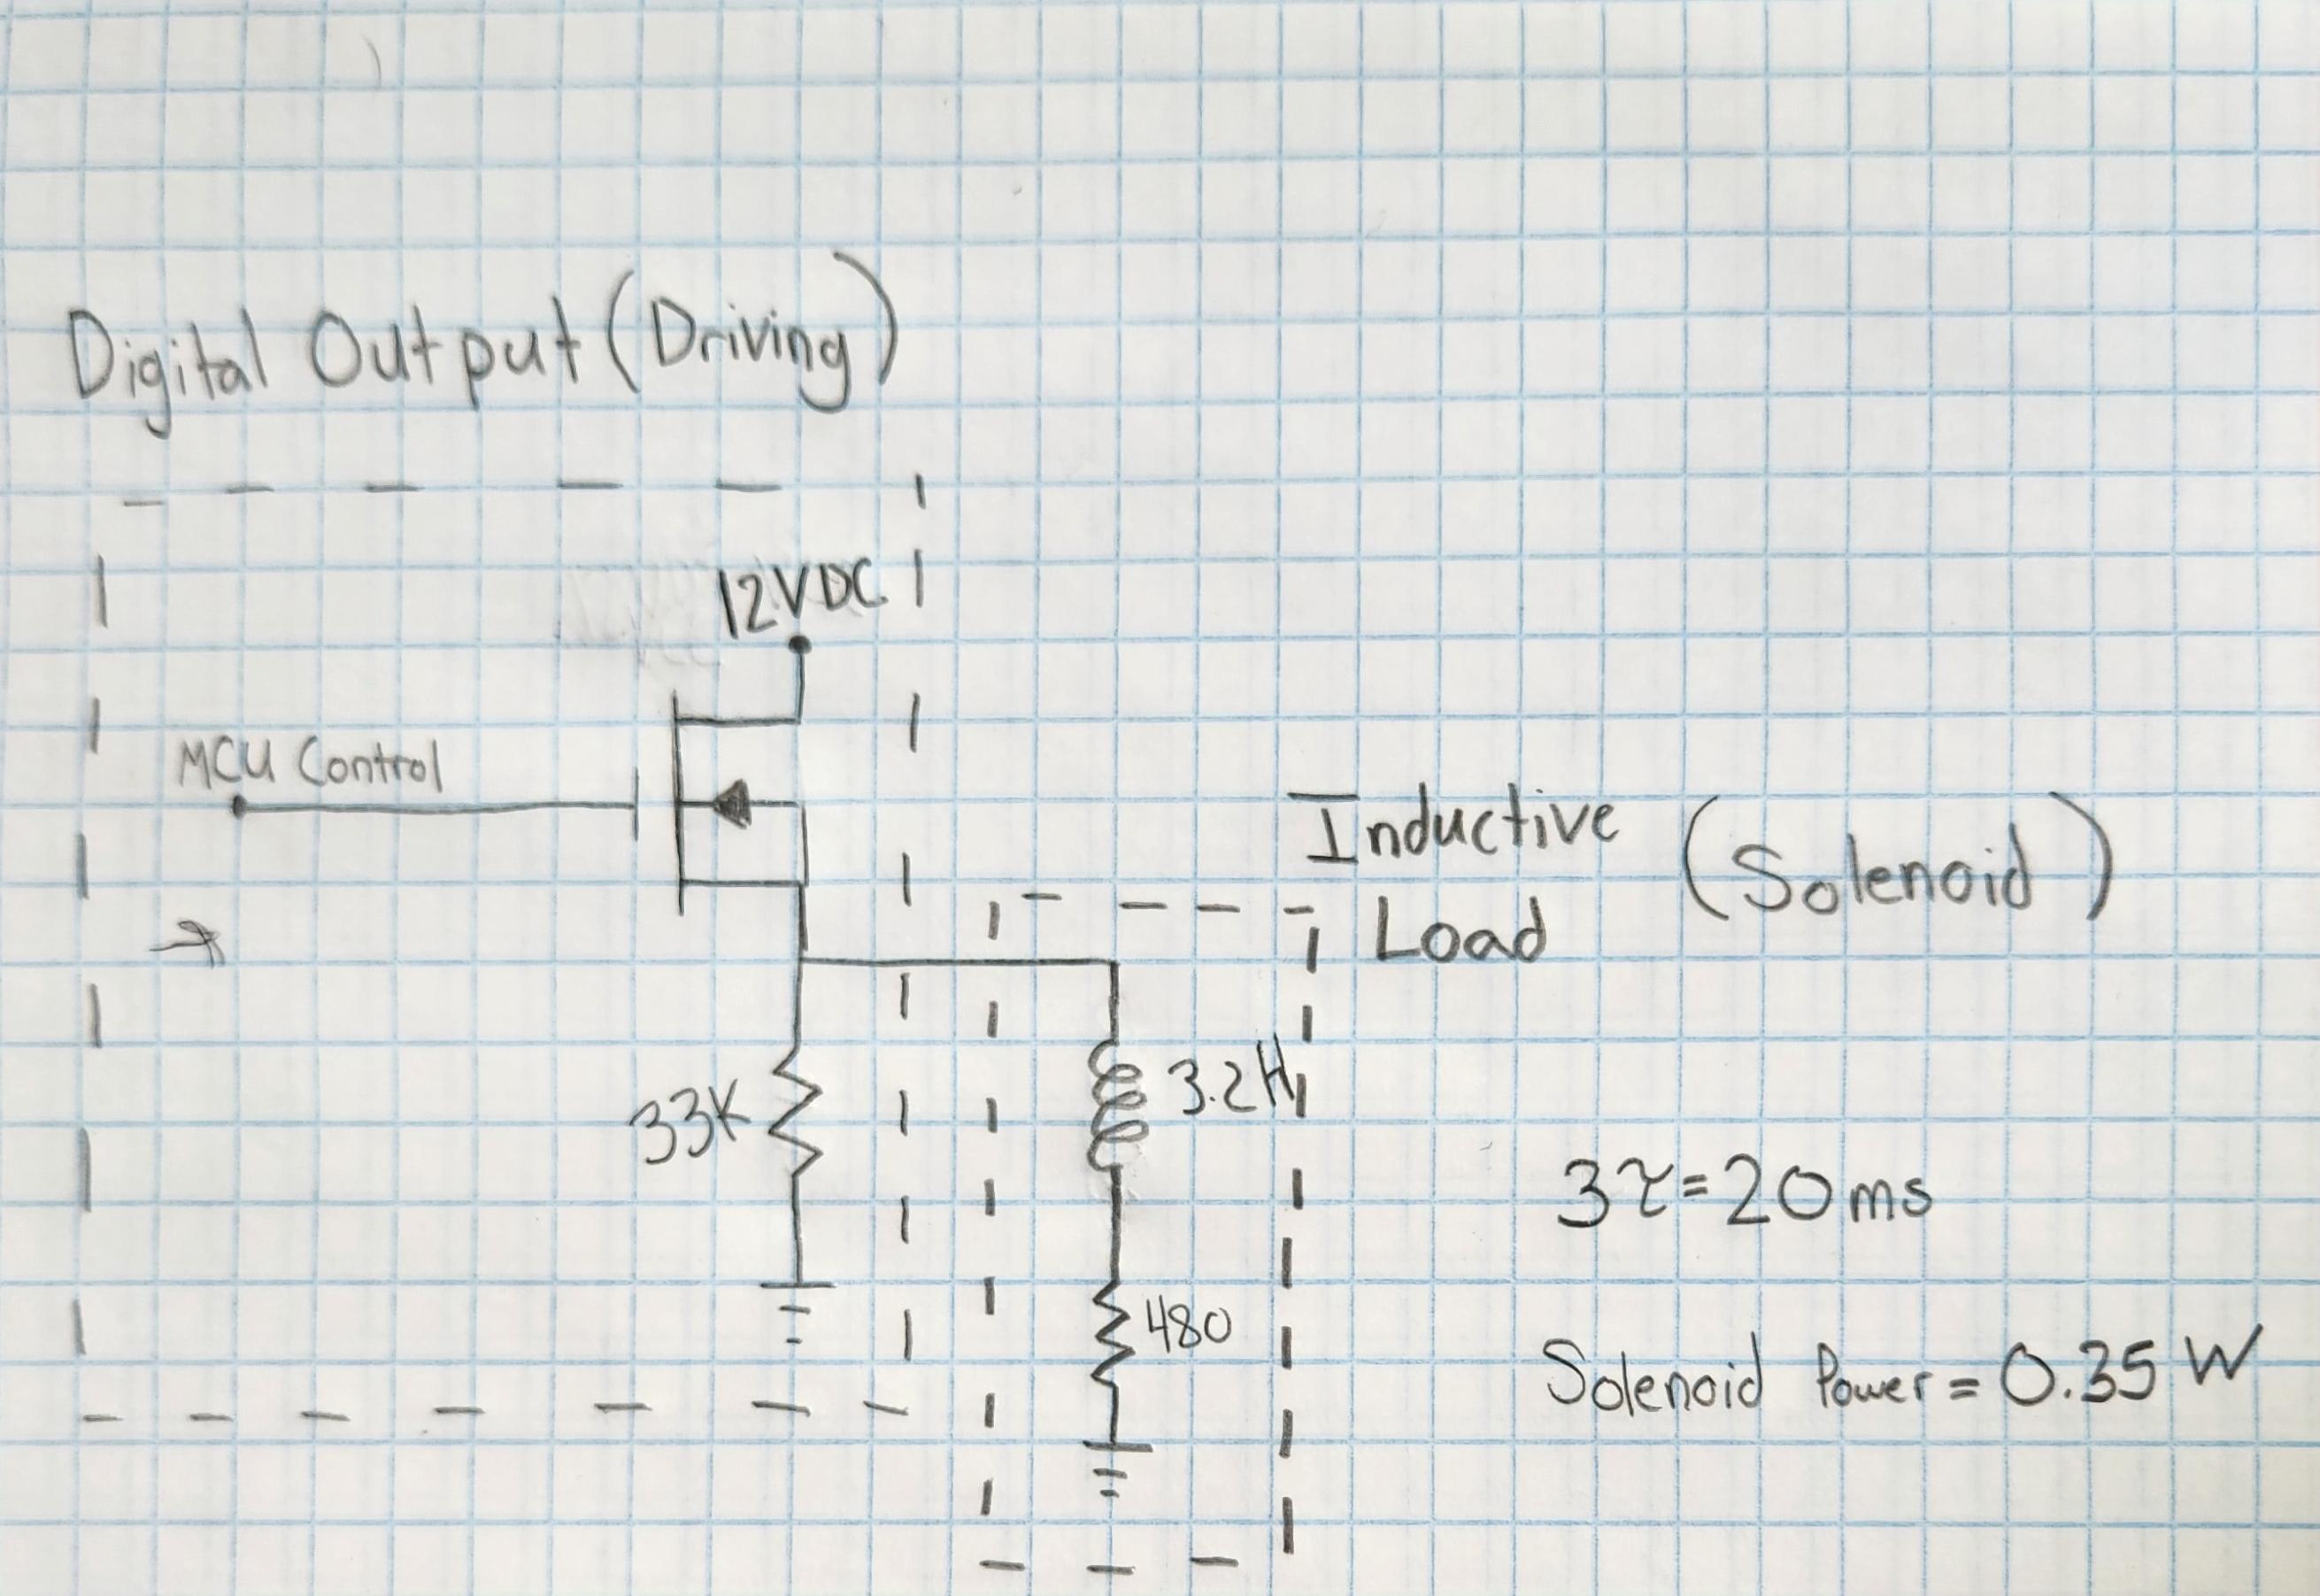 Digital Output (Driving)
12VDC
MCU Control
Inductive
Load
(Solenoid)
33K
3.2H
480
3τ=20ms
Solenoid Power = 0.35 W